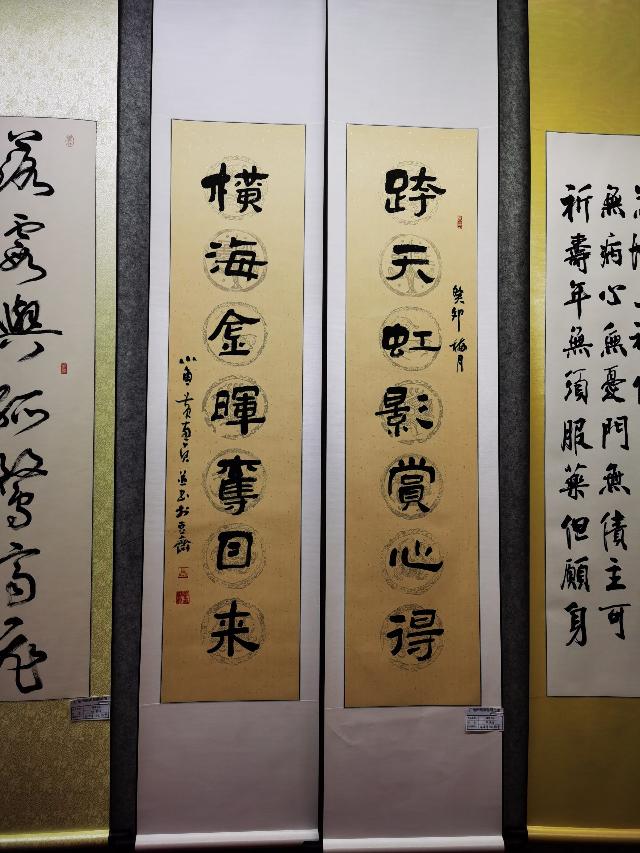 祈壽年無須服藥但願身
無病心無憂門無債主可
跨天虹影賞心得
癸卯梅月
橫海金暉奪目来
落霞與孤鶩齊飛